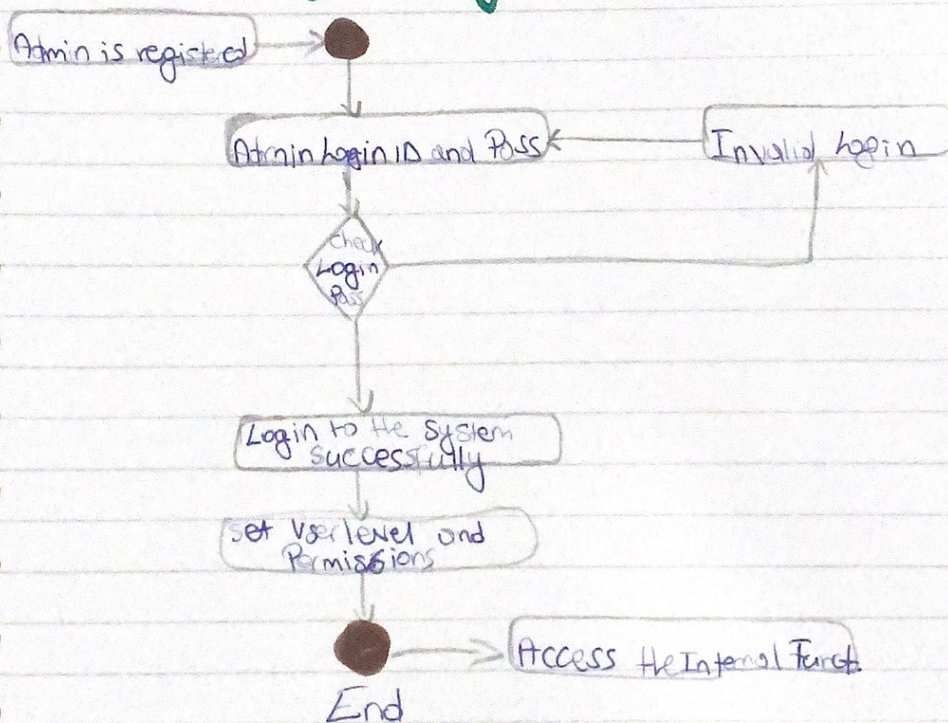 Admin is registered
Admin Login ID and Pass
Invalid Login
Check
Login
Pass
Login to the System
Successfully
Set User level and
Permissions
Access the Internal Funct
End